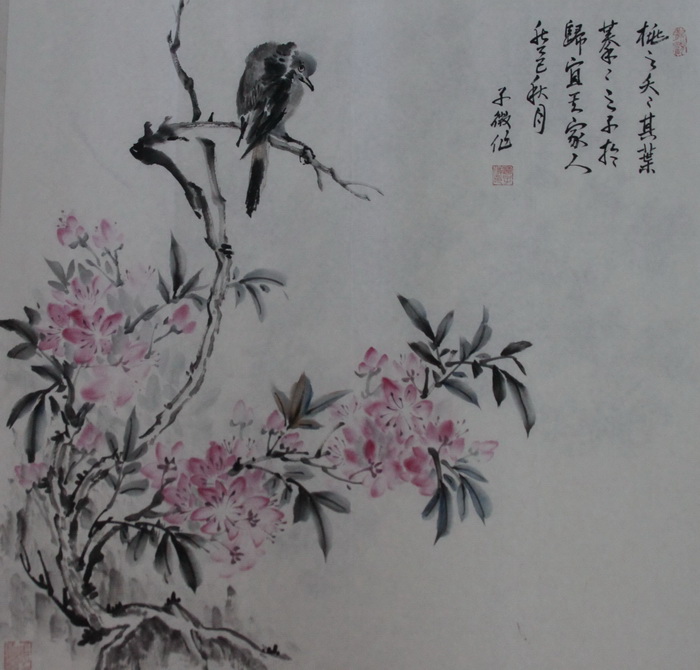 桃之夭々其葉
蓁々之子於
歸宜其家人
癸巳秋月
子微作